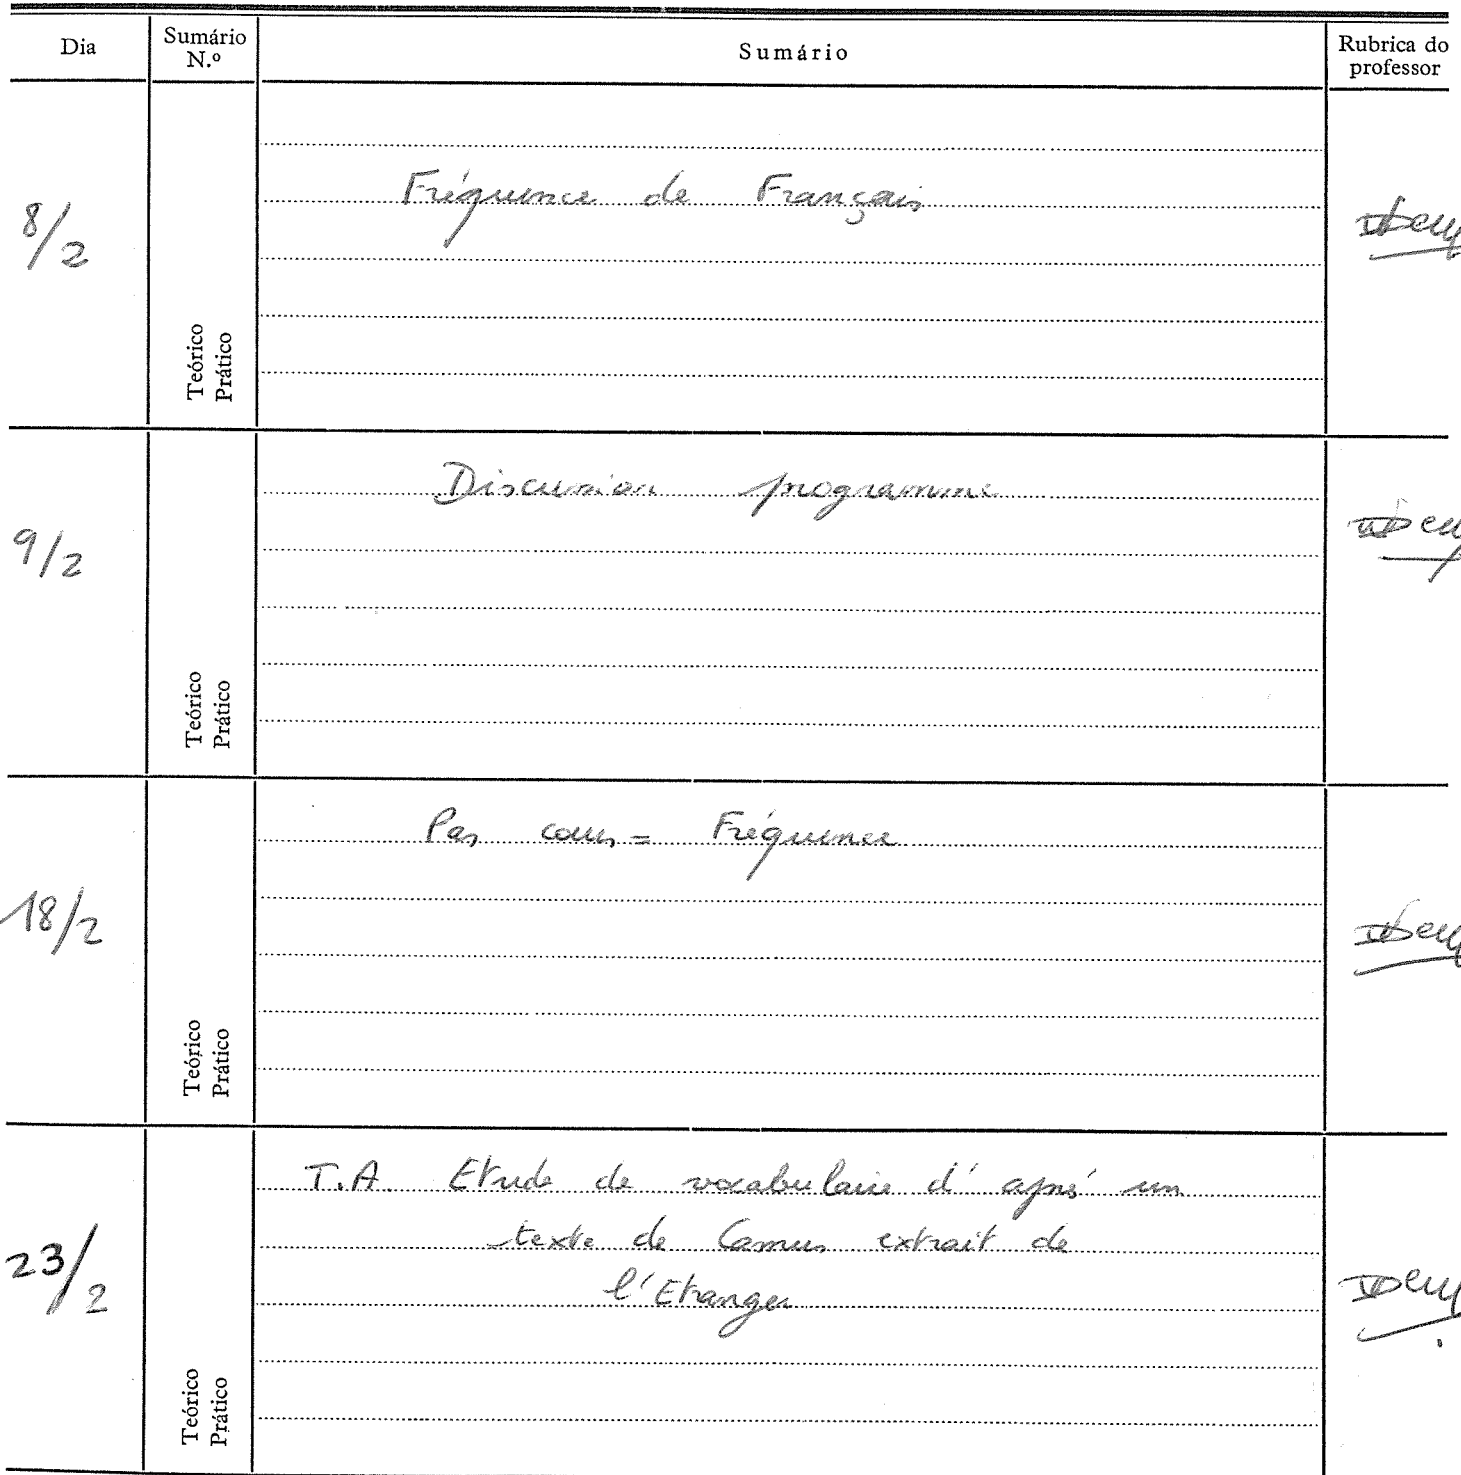 Dia
Sumário
N.º
Sumário
Rubrica do
professor
8/2
Teórico
Prático
Fréquence de Français
9/2
Teórico
Prático
Discussion programme
18/2
Teórico
Prático
Pas cours = Fréquence
23/2
Teórico
Prático
T.A. Etude de vocabulaire d'après un
texte de Camus extrait de
l'Etranger